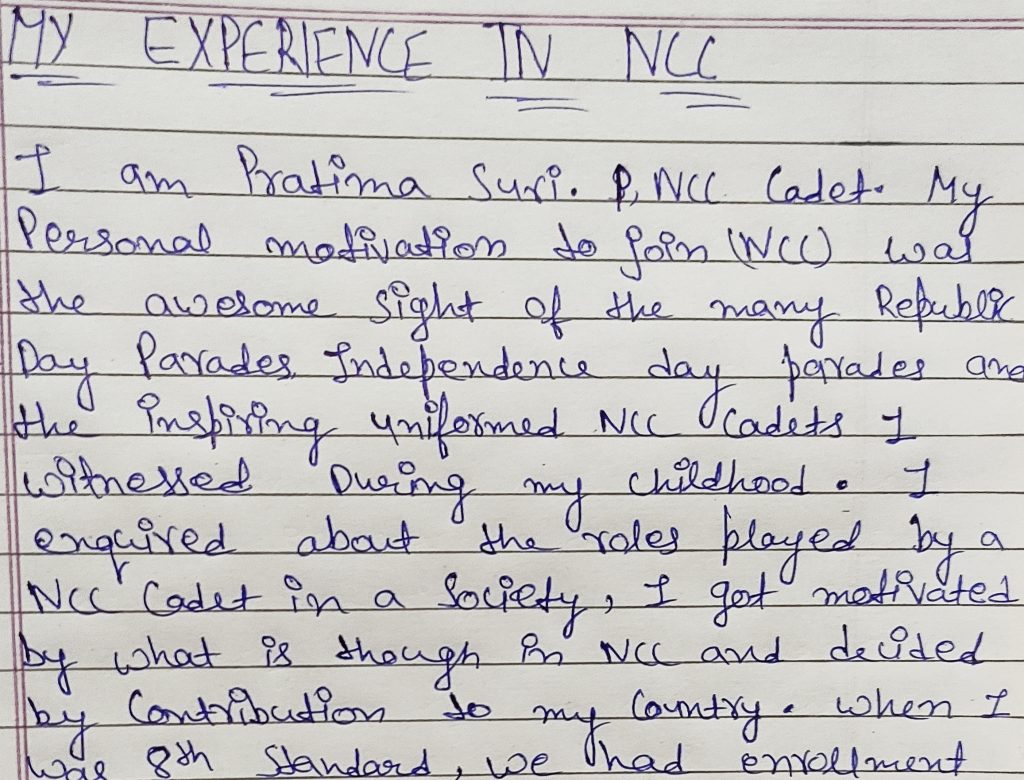 MY EXPERIENCE IN NCC
I am Pratima Suri. P, NCC Cadet. My
Personal motivation to join (NCC) was
the awesome sight of the many Republic
Day Parades, Independence day parades and
the inspiring uniformed NCC Cadets I
witnessed During my childhood. I
enquired about the roles played by a
NCC Cadet in a Society, I got motivated
by what is though in NCC and decided
by Contribution to my Country. when I
was 8th Standard, we had enrollment